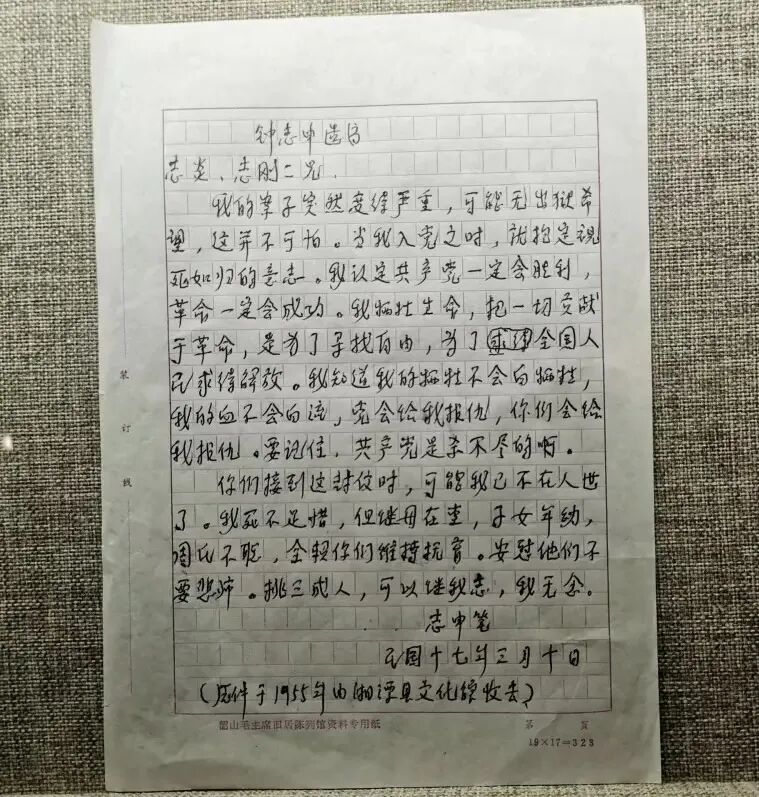 钟志申遗书
志炎、志刚二兄.
我的案子突然变得严重，可能无出狱希
望，这并不可怕。当我入党之时，就抱定视
死如归的意志。我认定共产党一定会胜利，
革命一定会成功。我牺牲生命，把一切贡献
于革命，是为了寻找自由，为了求得全国人
民求得解放。我知道我的牺牲不会白牺牲，
我的血不会白流，党会给我报仇，你们会给
我报仇。要记住，共产党是杀不尽的啊。
你们接到这封信时，可能我已不在人世
了。我死不足惜，但继母在堂，子女年幼，
周氏不聪，全赖你们维持抚育。安慰他们不
要悲师。挑三成人，可以继我志，我无念。
志申笔
民国十七年三月十日
（原件于1955年由湘潭县文化馆收去）
韶山毛主席旧居陈列馆资料专用纸
第 页
19×17=323
装
订
线